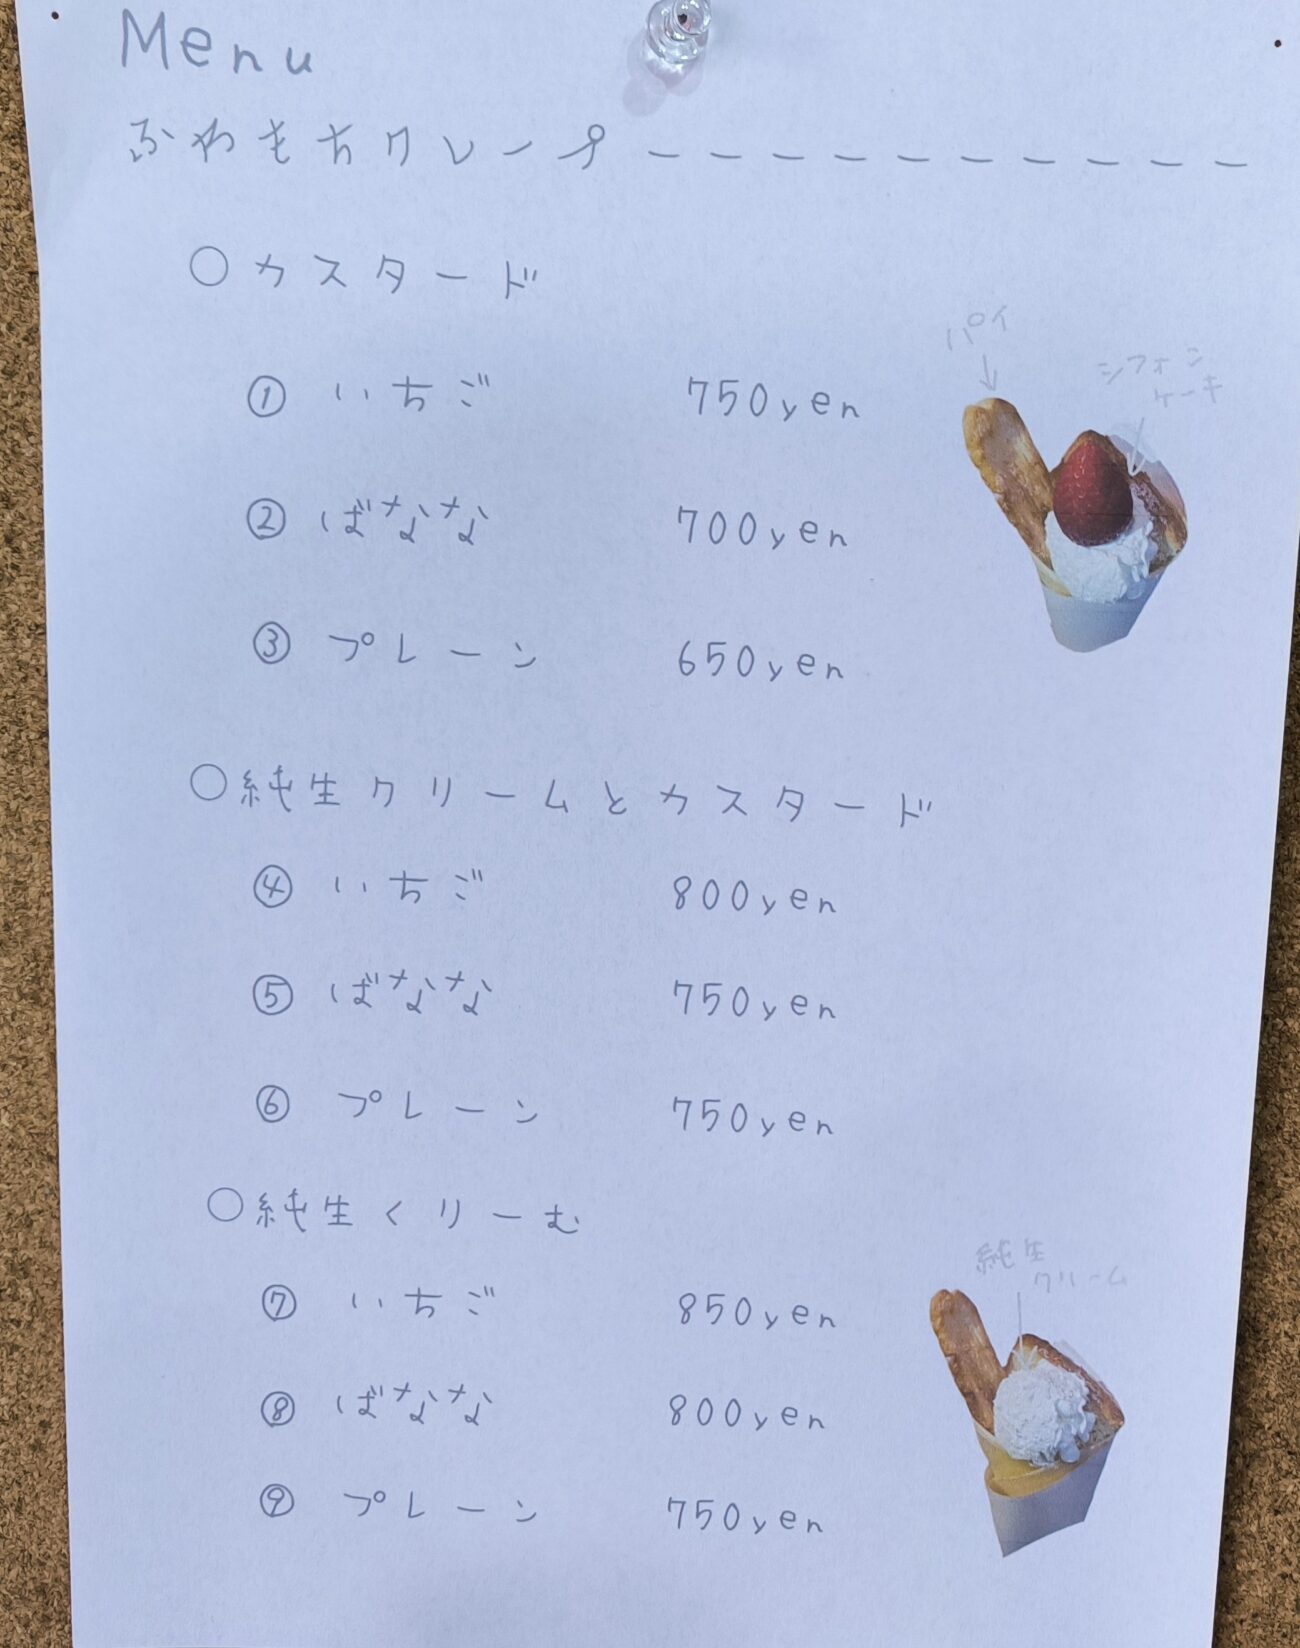 Menu
ふわもちクレープ ー ー ー ー ー ー ー ー ー ー
○カスタード
① いちご 750yen
② ばなな 700yen
③ プレーン 650yen
パイ
↓
シフォン
ケーキ
○純生クリームとカスタード
④ いちご 800yen
⑤ ばなな 750yen
⑥ プレーン 750yen
○純生くりーむ
⑦ いちご 850yen
⑧ ばなな 800yen
⑨ プレーン 750yen
純生
クリーム